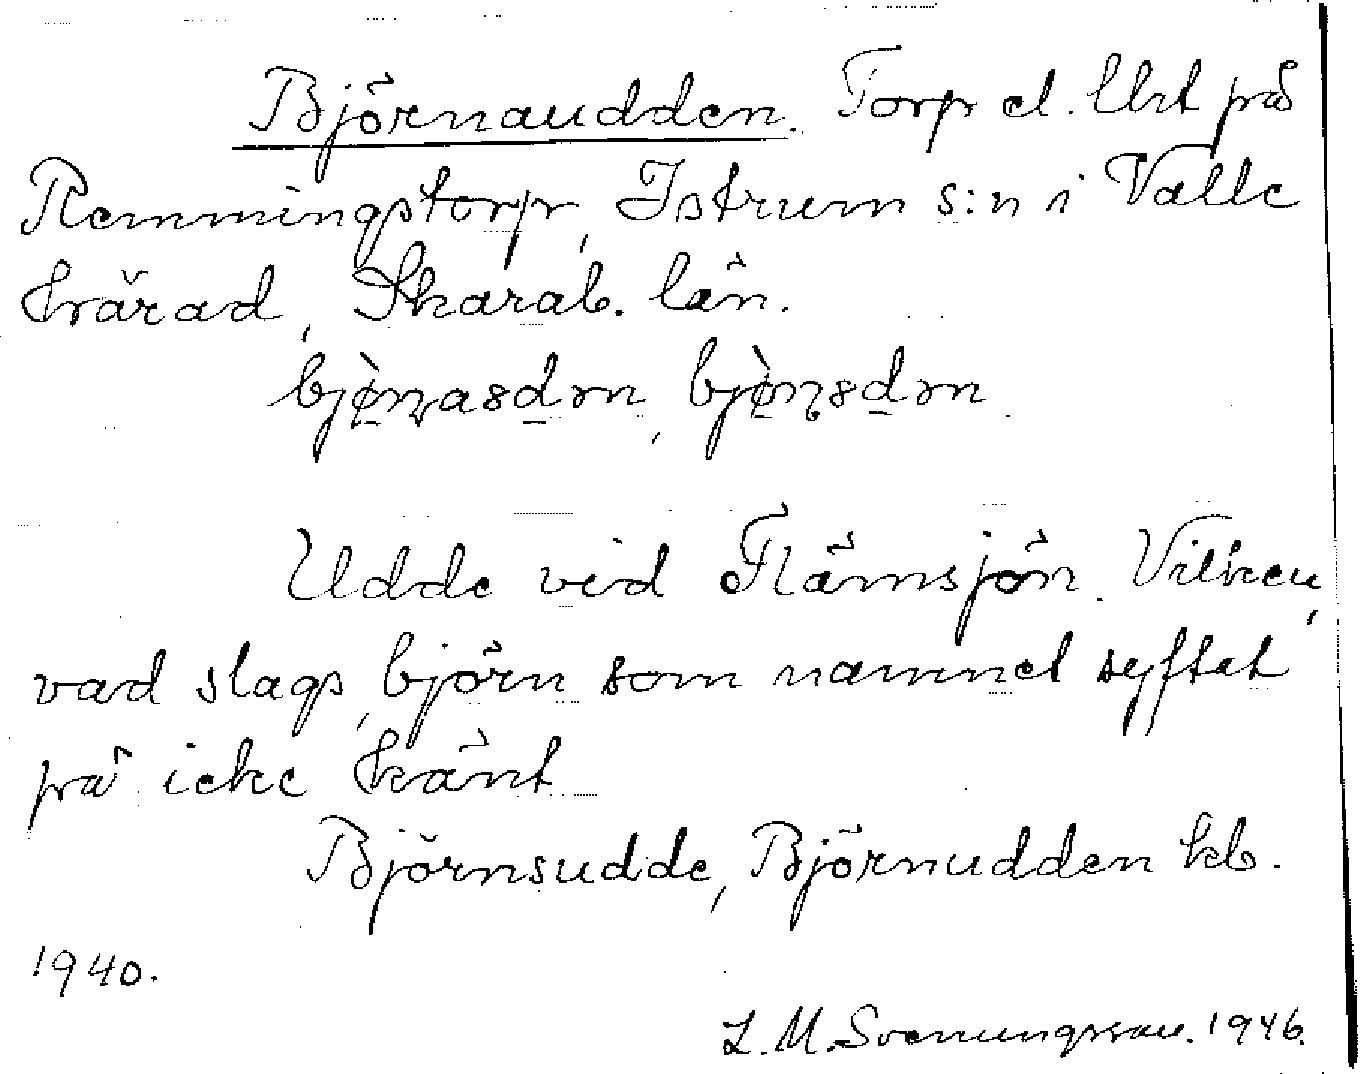 Björnaudden. Torp el. lht på
Remmingstorp, Istrum s:n i Valle
härad, Skarab. län.
bjø̀ɳasdən, bjø̀ɳsdən
Udde vid Flämsjön. Vilken,
vad slags, björn som namnet syftat
på icke känt
Björnsudde, Björnudden kb.
1940.
L. M. Svenungsson. 1946.